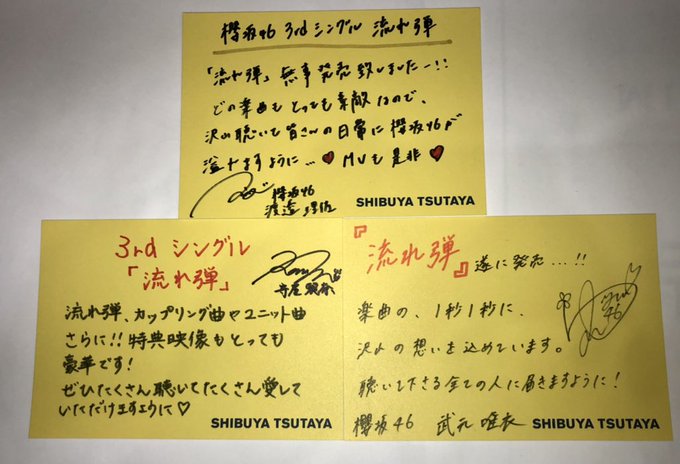 櫻坂46 3rdシングル 流れ弾
「流れ弾」無事発売致しましたー!!
どの楽曲もとっても素敵なので、
沢山聴いて皆さんの日常に櫻坂46が
溢れますように…♥MVも是非♥
櫻坂46
渡邉理佐
SHIBUYA TSUTAYA
3rd シングル
「流れ弾」
守屋麗奈
流れ弾、カップリング曲やユニット曲
さらに!!特典映像もとっても
豪華です!
ぜひたくさん聴いてたくさん愛して
いただけますように♡
SHIBUYA TSUTAYA
『流れ弾』遂に発売...!!
楽曲の、1秒1秒に、
沢山の想いを込めています。
聴いて下さる全ての人に届きますように!
櫻坂46 武元唯衣
SHIBUYA TSUTAYA